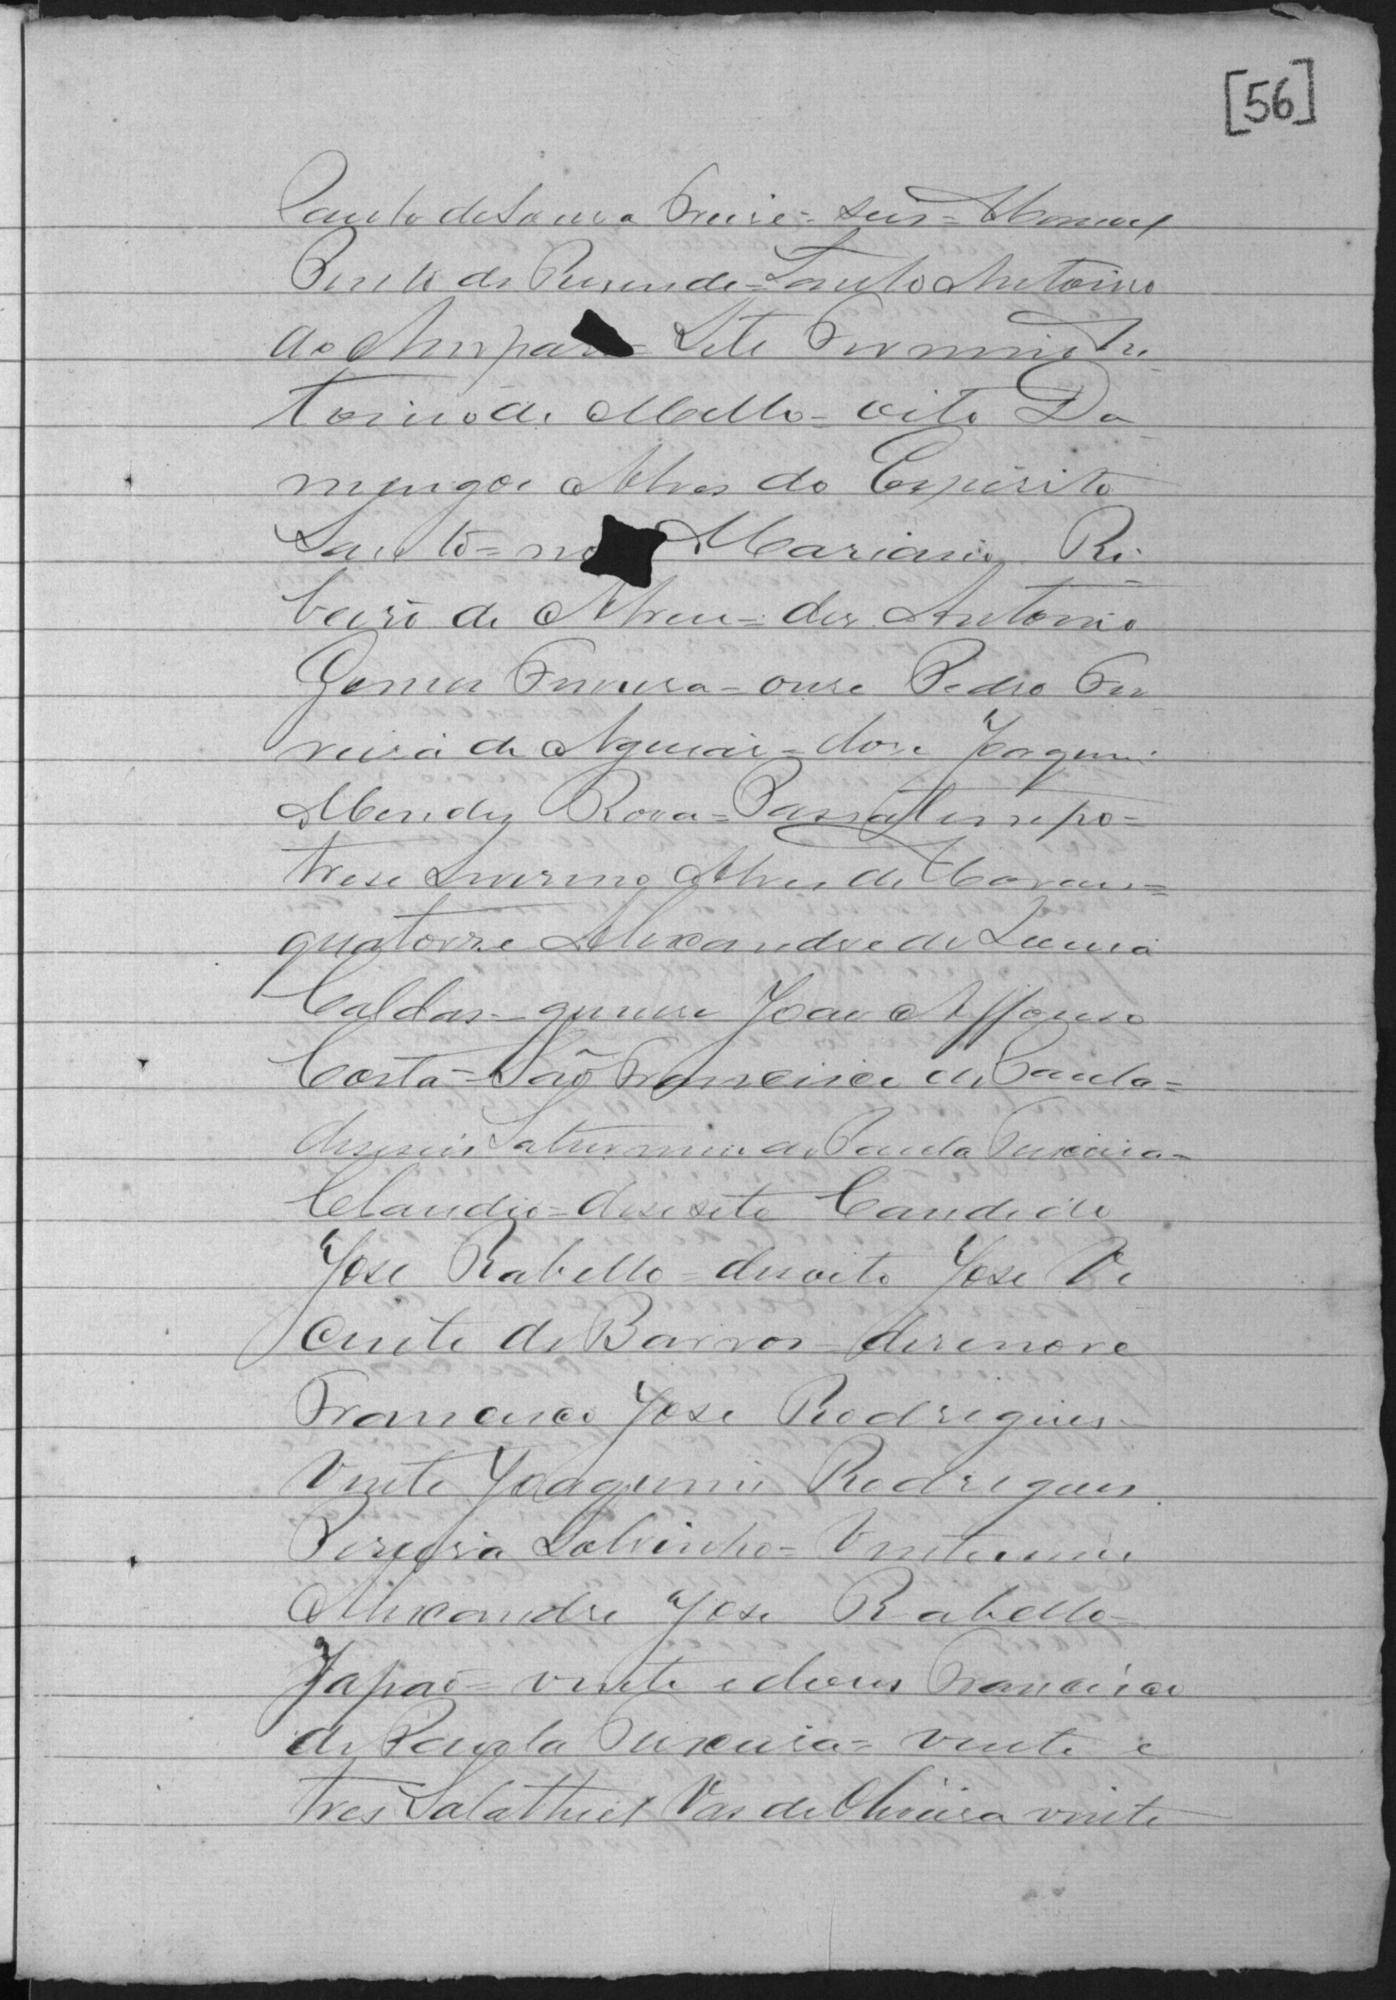 [56]
Paulo de Souza Freire = seis = Manoel
Pinto de Resende = Santo Antonio
do Amparo = Sete Firmino An
tonio de Mello = oito Do
mingos Alves do Espirito
Santo = no Mariano Ri
beiro de Abreu = des Antonio
Gomes Ferreira = onse Pedro Fer
reira de Aguiar = dose Joaquim
Mendes Rosa = Passa Tempo =
trese Alves de Moraes =
quatorze Alexandre de Lima
Caldas = quinse João Affonso
Costa = São Francisco de Paula =
deseseis Saturnino de Paula Teixeira =
Claudio = desesete Candido
José Rabello = desoito José Vi
cente de Barros = desenove
Francisco José Rodrigues =
Vinte Joaquim Rodrigues
Pereira Sobrinho = Vinte e um
Alexandre José Rabello =
Japão = vinte e dous Francisco
de Paula Teixeira = vinte e
tres Salathiel Vas de Oliveira vinte